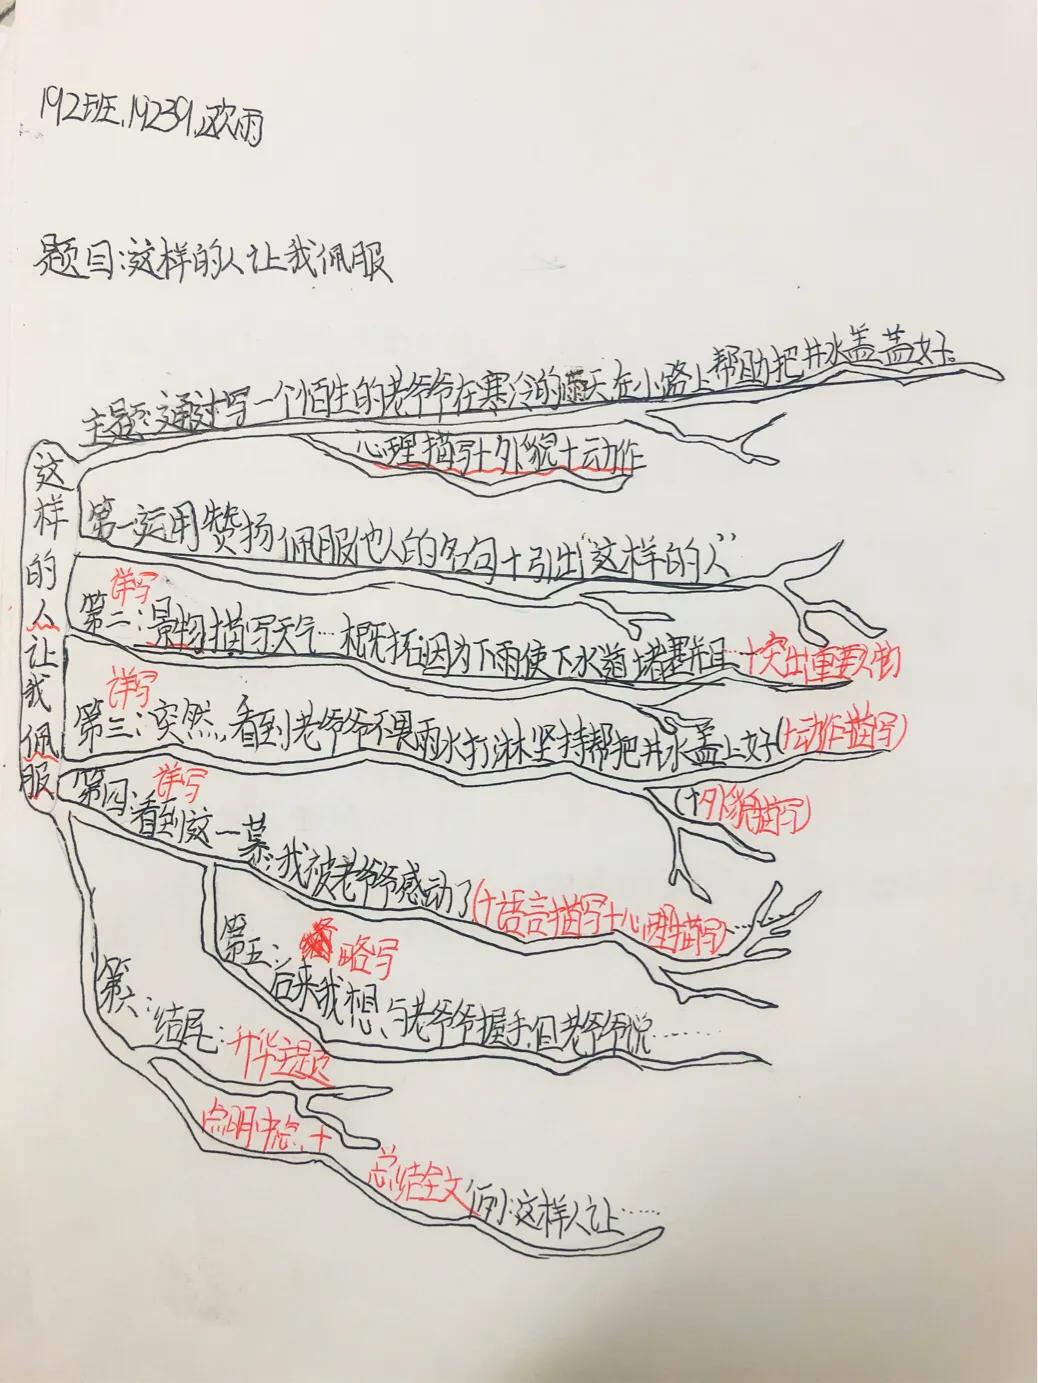 192班,19239,欧雨
题目:这样的人让我佩服
这样的人让我佩服
主题:通过写一个陌生的老爷爷在寒冷的雨天在小路上帮助把井水盖盖好。
心理描写+外貌+动作
第一运用赞扬佩服他人的名句+引出"这样的人"
详写
第二:景物描写天气…概括因为下雨使下水道堵塞并且…+突出重要人物
详写
第三:突然,看到老爷爷不畏雨水打淋坚持帮把井水盖上好(+动作描写)
(+外貌描写)
第四:详写
看到这一幕:我被老爷爷感动了(+语言描写+心理描写)……
第五: 略写
后来我想与老爷爷握手,但老爷爷说……
第六:
结尾:升华主题
点明中心+
总结全文 例:这样人让……